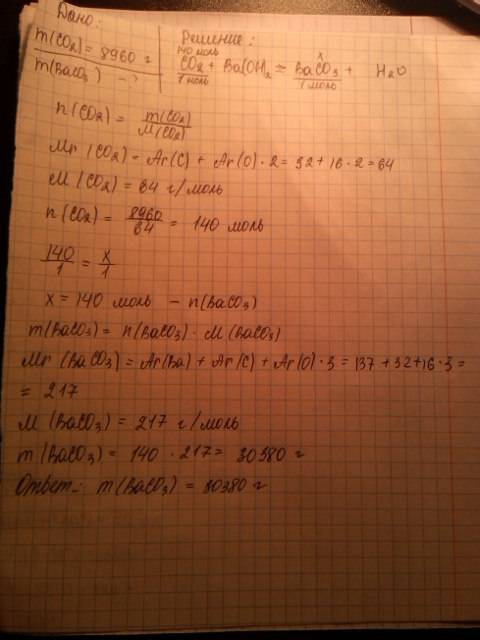 Дано:
m(CO2) = 8960 г
m(BaCO3) - ?
Решение:
140 моль x
CO2 + Ba(OH)2 = BaCO3 + H2O
1 моль 1 моль
n(CO2) = m(CO2) / M(CO2)
Mr(CO2) = Ar(C) + Ar(O) · 2 = 32 + 16 · 2 = 64
M(CO2) = 64 г/моль
n(CO2) = 8960 / 64 = 140 моль
140 / 1 = x / 1
x = 140 моль – n(BaCO3)
m(BaCO3) = n(BaCO3) · M(BaCO3)
Mr(BaCO3) = Ar(Ba) + Ar(C) + Ar(O) · 3 = 137 + 32 + 16 · 3 =
= 217
M(BaCO3) = 217 г/моль
m(BaCO3) = 140 · 217 = 30380 г
Ответ: m(BaCO3) = 30380 г